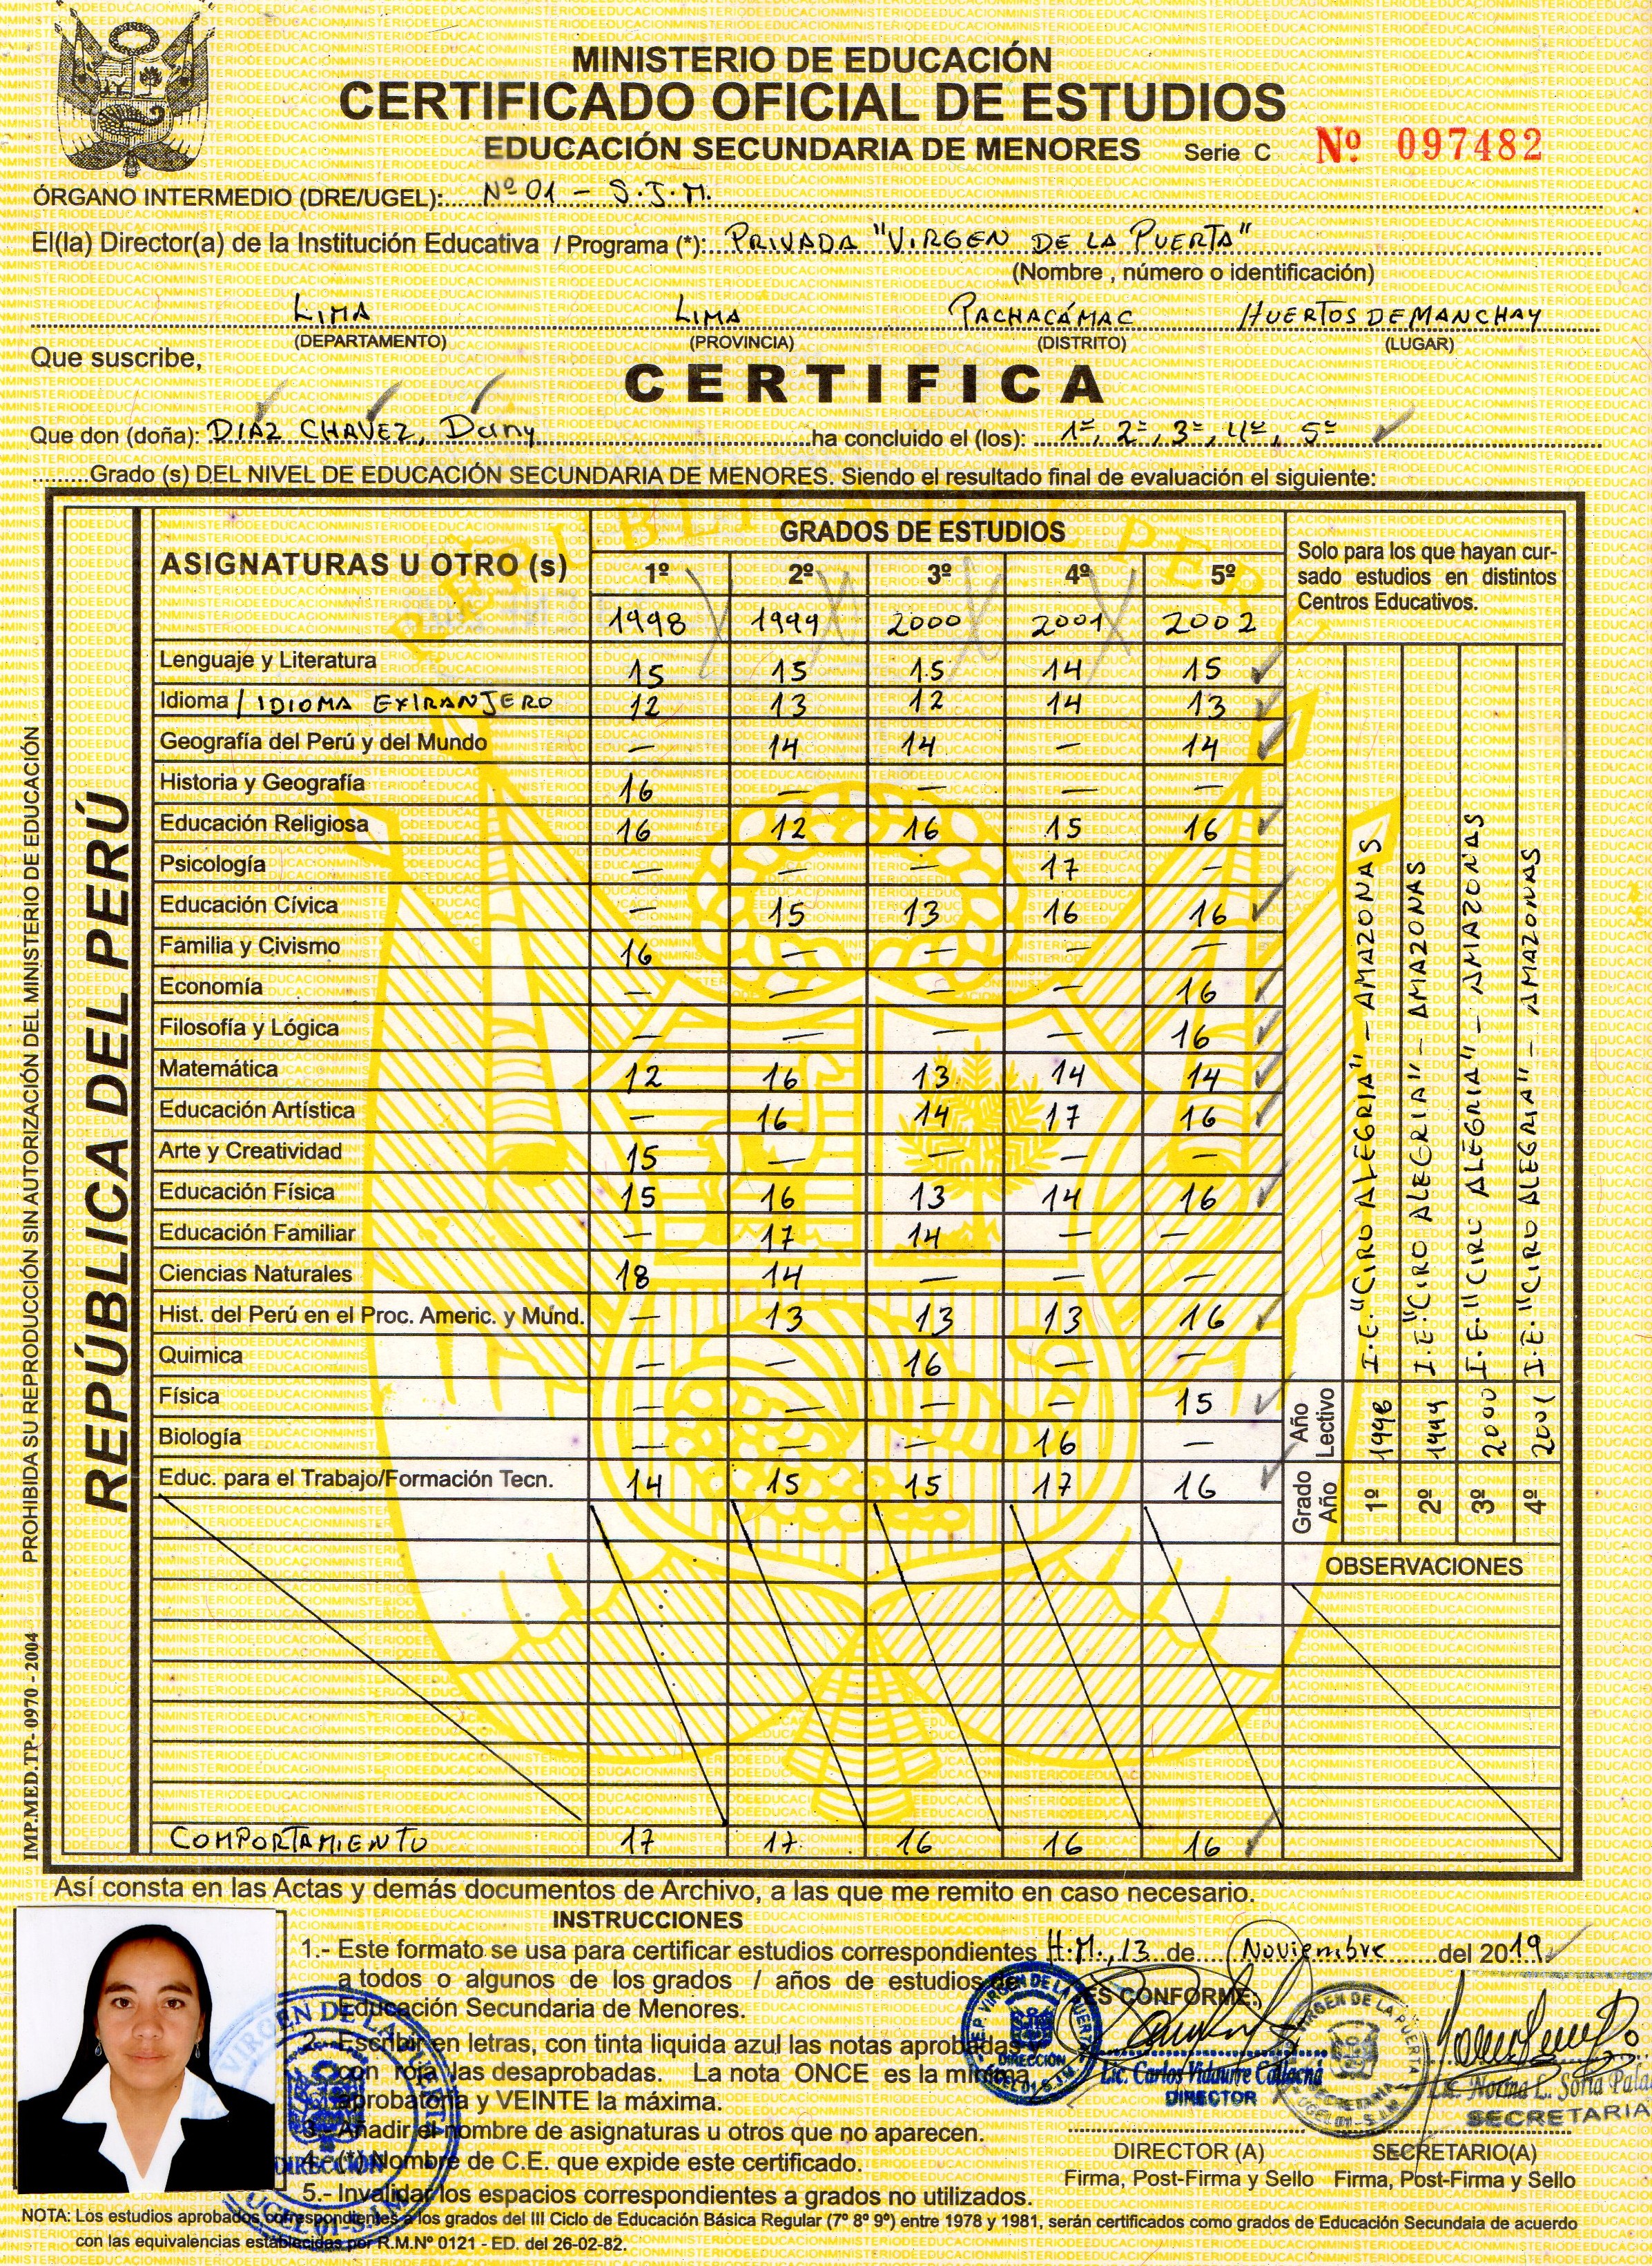 MINISTERIO DE EDUCACIÓN
CERTIFICADO OFICIAL DE ESTUDIOS
EDUCACIÓN SECUNDARIA DE MENORES Serie C Nº 097482
ÓRGANO INTERMEDIO (DRE/UGEL): Nº 01 - S.J.M.
El(la) Director(a) de la Institución Educativa / Programa (*): PRIVADA "VIRGEN DE LA PUERTA"
(Nombre , número o identificación)
LIMA LIMA PACHACÁMAC HUERTOS DE MANCHAY
(DEPARTAMENTO) (PROVINCIA) (DISTRITO) (LUGAR)
Que suscribe,
CERTIFICA
Que don (doña): DIAZ CHAVEZ, Dany ha concluido el (los): 1º, 2º, 3º, 4º, 5º
Grado (s) DEL NIVEL DE EDUCACIÓN SECUNDARIA DE MENORES. Siendo el resultado final de evaluación el siguiente:
REPÚBLICA DEL PERÚ
PROHIBIDA SU REPRODUCCIÓN SIN AUTORIZACIÓN DEL MINISTERIO DE EDUCACIÓN
IMP.MED.TP- 0970 - 2004
ASIGNATURAS U OTRO (s) GRADOS DE ESTUDIOS
1º 2º 3º 4º 5º
1998 1999 2000 2001 2002
Lenguaje y Literatura 15 15 15 14 15
Idioma / IDIOMA EXTRANJERO 12 13 12 14 13
Geografía del Perú y del Mundo — 14 14 — 14
Historia y Geografía 16 — — — —
Educación Religiosa 16 12 16 15 16
Psicología — — — 17 —
Educación Cívica — 15 13 16 16
Familia y Civismo 16 — — — —
Economía — — — — 16
Filosofía y Lógica — — — — 16
Matemática 12 16 13 14 14
Educación Artística — 16 14 17 16
Arte y Creatividad 15 — — — —
Educación Física 15 16 13 14 16
Educación Familiar — 17 14 — —
Ciencias Naturales 18 14 — — —
Hist. del Perú en el Proc. Americ. y Mund. — 13 13 13 16
Quimica — — 16 — —
Física — — — — 15
Biología — — — 16 —
Educ. para el Trabajo/Formación Tecn. 14 15 15 17 16
COMPORTAMIENTO 17 17 16 16 16
Solo para los que hayan cur-
sado estudios en distintos
Centros Educativos.
Grado Año Año Lectivo
1º 1998 I.E. "CIRO ALEGRIA" - AMAZONAS
2º 1999 I.E. "CIRO ALEGRIA" - AMAZONAS
3º 2000 I.E. "CIRO ALEGRIA" - AMAZONAS
4º 2001 I.E. "CIRO ALEGRIA" - AMAZONAS
OBSERVACIONES
Así consta en las Actas y demás documentos de Archivo, a las que me remito en caso necesario.
INSTRUCCIONES
1.- Este formato se usa para certificar estudios correspondientes
a todos o algunos de los grados / años de estudios de
Educación Secundaria de Menores.
2.- Escribir en letras, con tinta liquida azul las notas aprobadas y
con rojo las desaprobadas. La nota ONCE es la mínima
aprobatoria y VEINTE la máxima.
3.- Añadir el nombre de asignaturas u otros que no aparecen.
4.- (*) Nombre de C.E. que expide este certificado.
5.- Invalidar los espacios correspondientes a grados no utilizados.
H.M., 13 de Noviembre del 2019
ES CONFORME:
I.E.P. VIRGEN DE LA PUERTA
DIRECCIÓN
UGEL 01-S.J.M.
Lic. Carlos Vidaurre
DIRECTOR
VIRGEN DE LA PUERTA
SECRETARIA
UGEL 01-S.J.M
Lic. Norma L. Soria
SECRETARIA
DIRECTOR (A) SECRETARIO(A)
Firma, Post-Firma y Sello Firma, Post-Firma y Sello
VIRGEN DE LA PUERTA
DIRECCIÓN
UGEL 01-S.J.M
NOTA: Los estudios aprobados correspondientes a los grados del III Ciclo de Educación Básica Regular (7º 8º 9º) entre 1978 y 1981, serán certificados como grados de Educación Secundaia de acuerdo
con las equivalencias establecidas por R.M.Nº 0121 - ED. del 26-02-82.